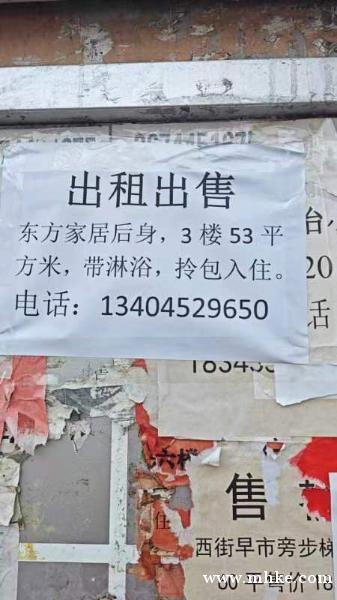 出租出售
东方家居后身，3楼53平
方米，带淋浴，拎包入住。
电话：13404529650
台
20
话
18345
六楼
住
售
西街早市旁步梯
www.mhke.com